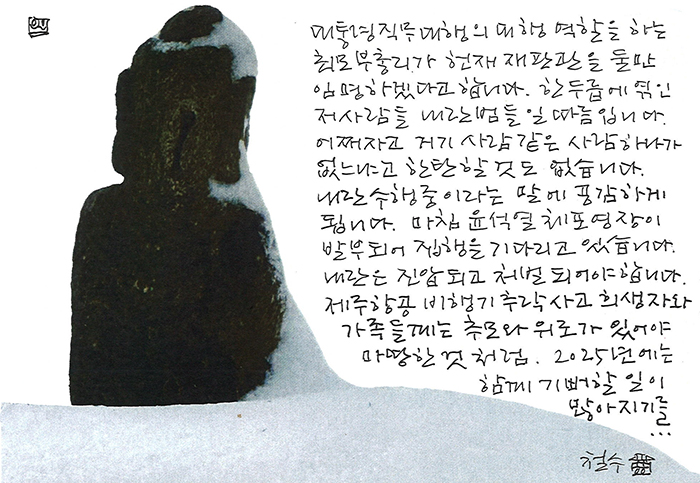 대통령직무대행의 대행 역할을 하는
최모부총리가 헌재 재판관을 둘만
임명하겠다고 합니다. 한두릅에 엮인
저사람들 내란범들일 따름입니다.
어쩌자고 거기 사람같은 사람하나가
없느냐고 한탄할 것도 없습니다.
내란수행중이라는 말에 공감하게
됩니다. 마침 윤석열체포영장이
발부되어 집행을 기다리고 있습니다.
내란은 진압되고 처벌되어야합니다.
제주항공 비행기추락사고 희생자와
가족들께는 추모와 위로가 있어야
마땅한 것처럼. 2025년에는
함께 기뻐할 일이
많아지기를
...
철수